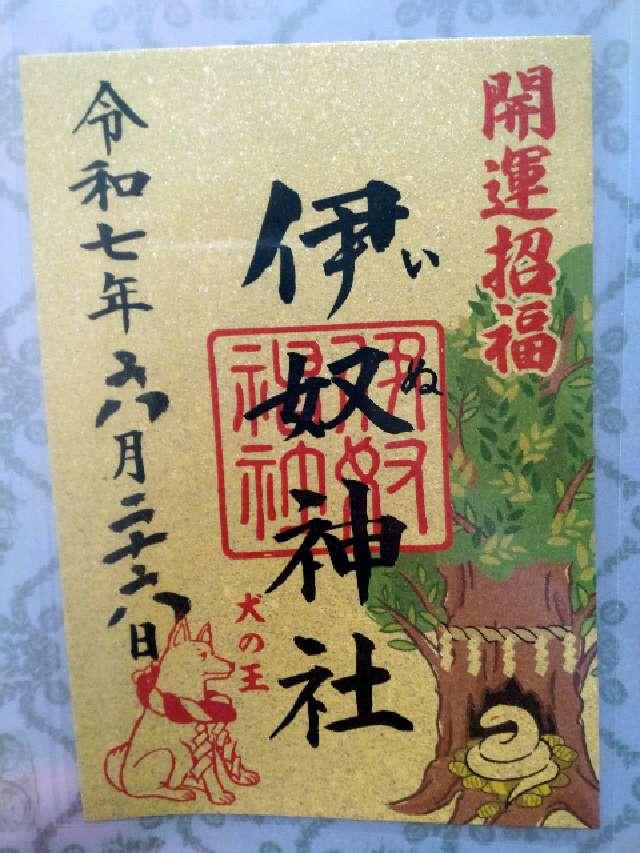 開運招福
伊奴神社
いぬ
伊奴神社
犬の王
令和七年六月二十六日